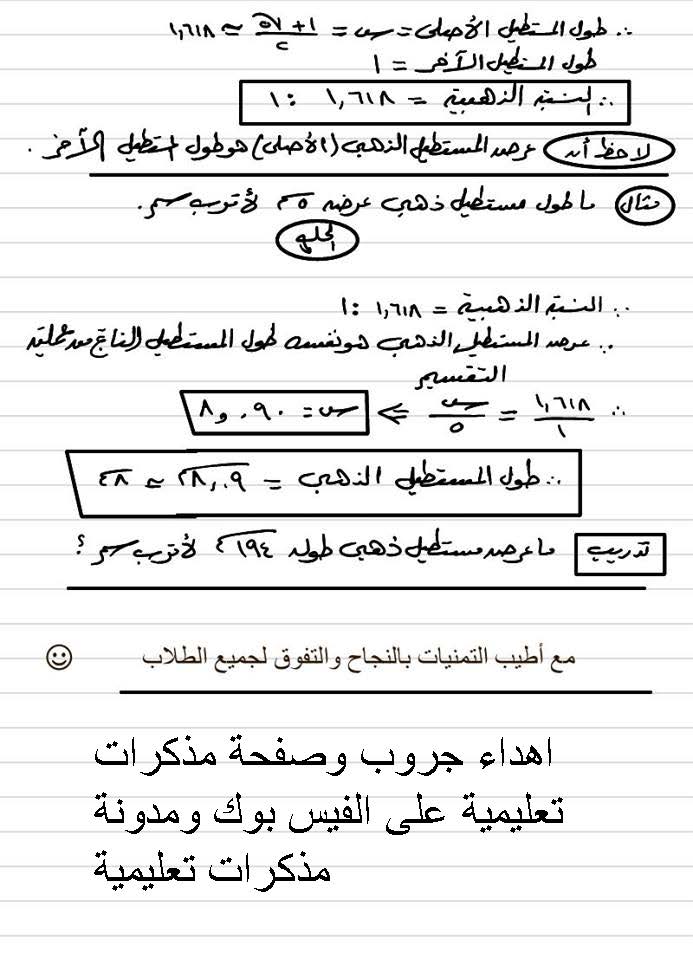 ∴ طول المستطيل الأصلى = س = (√٥ + ١)/٢ ≃ ١,٦١٨
طول المستطيل الآخر = ١
∴ النسبة الذهبية = ١,٦١٨ : ١
لاحظ أن عرض المستطيل الذهبى (الأصلى) هو طول المستطيل الآخر .
مثال ما طول مستطيل ذهبى عرضه ٥ سم لأقرب سم .
الحل
∵ النسبة الذهبية = ١,٦١٨ : ١
∵ عرض المستطيل الذهبى هو نفسه طول المستطيل الناتج من عملية
التقسيم
∴ ١,٦١٨/١ = س/٥ ⇐ س = ٨,٠٩٠
∴ طول المستطيل الذهبى = ٨,٠٩ سم ≃ ٨ سم
تدريب ما عرض مستطيل ذهبى طوله ١٩٤ سم لأقرب سم ؟
مع أطيب التمنيات بالنجاح والتفوق لجميع الطلاب ☺
اهداء جروب وصفحة مذكرات
تعليمية على الفيس بوك ومدونة
مذكرات تعليمية